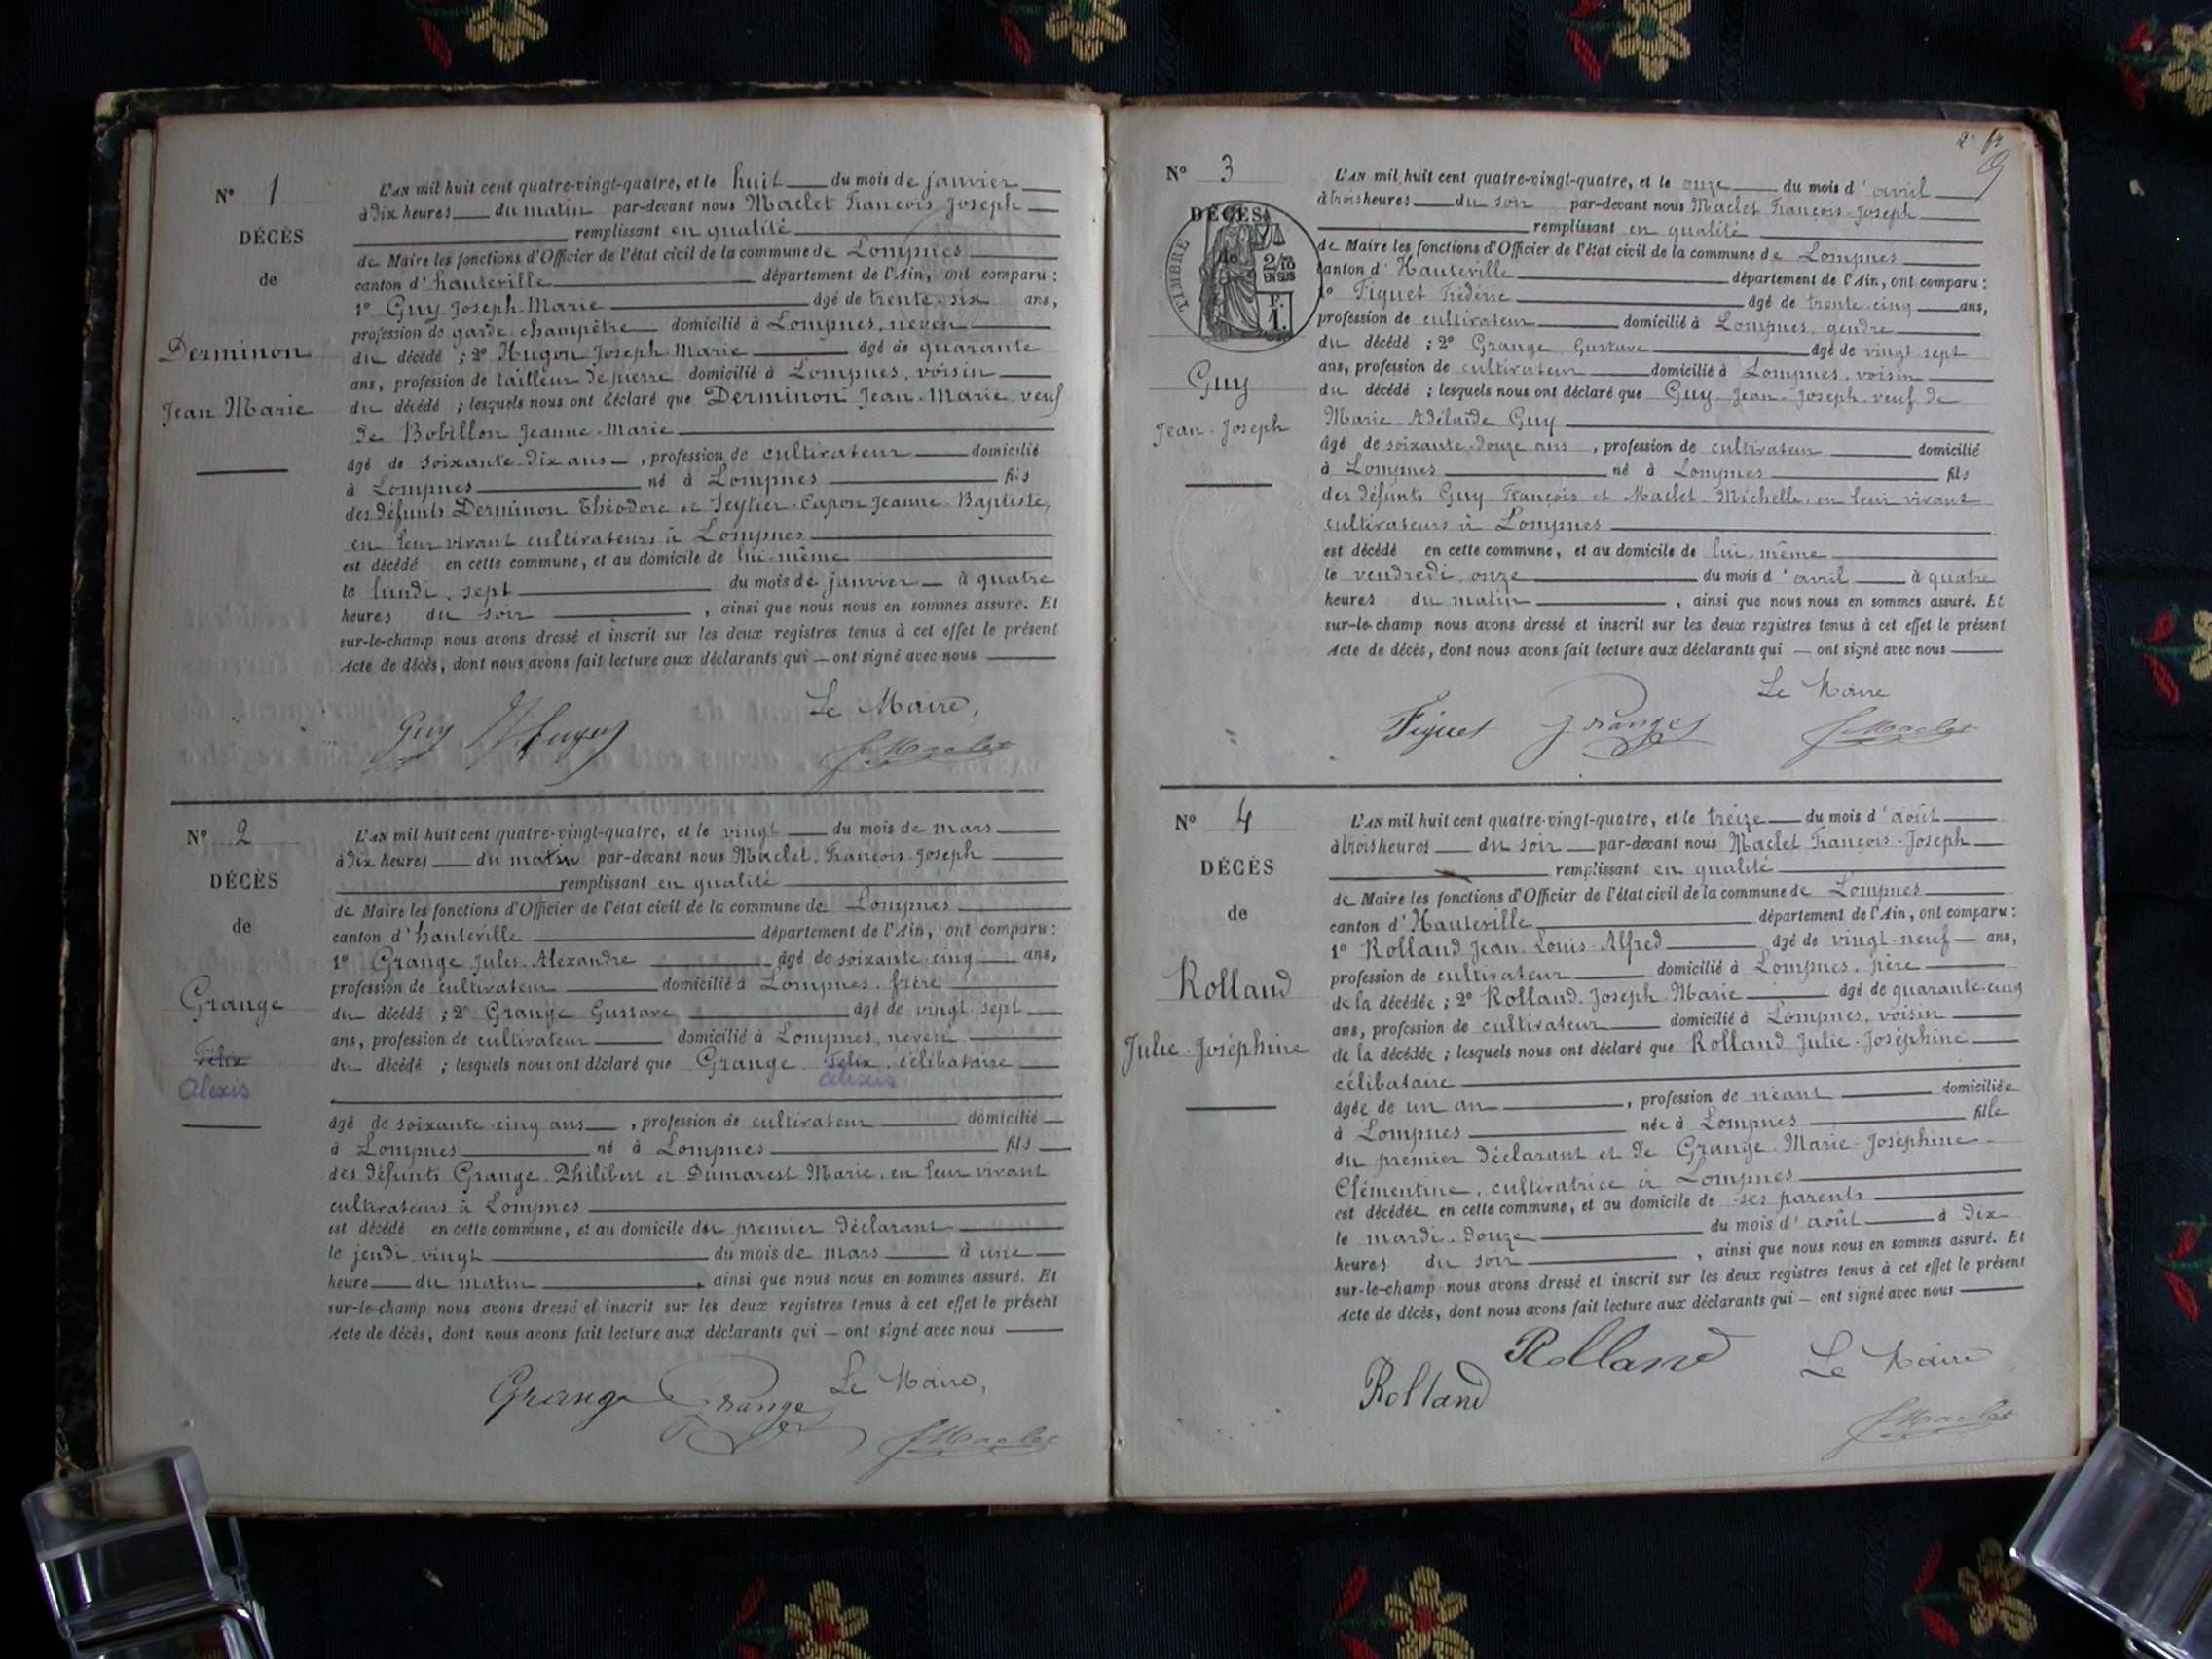 N° 1
DÉCÈS
de
Derminon
Jean Marie
L'AN mil huit cent quatre-vingt-quatre, et le huit du mois de janvier
à dix heures du matin par-devant nous Maclet François Joseph
remplissant en qualité
de Maire les fonctions d'Officier de l'état civil de la commune de Lompnes
canton d'hauteville département de l'Ain, ont comparu :
1° Guy Joseph-Marie âgé de trente-six ans,
profession de garde-champêtre domicilié à Lompnes, neveu
du décédé ; 2° Hugon Joseph-Marie âgé de quarante
ans, profession de tailleur de pierre domicilié à Lompnes, voisin
du décédé ; lesquels nous ont déclaré que Derminon Jean-Marie, veuf
de Bobillon Jeanne-Marie
âgé de soixante-dix ans , profession de cultivateur domicilié
à Lompnes né à Lompnes fils
des défunts Derminon Théodore et Seytier-Capon Jeanne-Baptiste,
en leur vivant cultivateurs à Lompnes
est décédé en cette commune, et au domicile de lui-même
le lundi, sept du mois de janvier à quatre
heures du soir , ainsi que nous nous en sommes assuré. Et
sur-le-champ nous avons dressé et inscrit sur les deux registres tenus à cet effet le présent
Acte de décès, dont nous avons fait lecture aux déclarants qui — ont signé avec nous
Le Maire,
Guy
F. Maclet
N° 2
DÉCÈS
de
Grange
Félix
Alexis
L'AN mil huit cent quatre-vingt-quatre, et le vingt du mois de mars
à dix heures du matin par-devant nous Maclet, François-Joseph
remplissant en qualité
de Maire les fonctions d'Officier de l'état civil de la commune de Lompnes
canton d'hauteville département de l'Ain, ont comparu :
1° Grange Jules-Alexandre âgé de soixante-cinq ans,
profession de cultivateur domicilié à Lompnes, frère
du décédé ; 2° Grange Gustave âgé de vingt-sept
ans, profession de cultivateur domicilié à Lompnes, neveu
du décédé ; lesquels nous ont déclaré que Grange Félix, célibataire
Alexis
âgé de soixante-cinq ans , profession de cultivateur domicilié
à Lompnes né à Lompnes fils
des défunts Grange Philibert et Dumarest Marie, en leur vivant
cultivateurs à Lompnes
est décédé en cette commune, et au domicile du premier déclarant
le jeudi, vingt du mois de mars à une
heure du matin ainsi que nous nous en sommes assuré. Et
sur-le-champ nous avons dressé et inscrit sur les deux registres tenus à cet effet le présent
Acte de décès, dont nous avons fait lecture aux déclarants qui — ont signé avec nous
Le Maire,
Grange Grange
F. Maclet
2e
9
N° 3
DÉCÈS
de
TIMBRE
2/10
EN SUS
F.
1.
Guy
Jean-Joseph
L'AN mil huit cent quatre-vingt-quatre, et le onze du mois d'avril
à trois heures du soir par-devant nous Maclet François-Joseph
remplissant en qualité
de Maire les fonctions d'Officier de l'état civil de la commune de Lompnes
canton d'Hauteville département de l'Ain, ont comparu :
1° Figuet Frédéric âgé de trente-cinq ans,
profession de cultivateur domicilié à Lompnes, gendre
du décédé ; 2° Grange Gustave âgé de vingt-sept
ans, profession de cultivateur domicilié à Lompnes, voisin
du décédé ; lesquels nous ont déclaré que Guy Jean-Joseph, veuf de
Marie-Adélaïde Guy
âgé de soixante-douze ans , profession de cultivateur domicilié
à Lompnes né à Lompnes fils
des défunts Guy François et Maclet Michelle, en leur vivant
cultivateurs à Lompnes
est décédé en cette commune, et au domicile de lui-même
le vendredi, onze du mois d'avril à quatre
heures du matin , ainsi que nous nous en sommes assuré. Et
sur-le-champ nous avons dressé et inscrit sur les deux registres tenus à cet effet le présent
Acte de décès, dont nous avons fait lecture aux déclarants qui — ont signé avec nous
Le Maire
Figuet Grange F. Maclet
N° 4
DÉCÈS
de
Rolland
Julie-Joséphine
L'AN mil huit cent quatre-vingt-quatre, et le treize du mois d'août
à trois heures du soir par-devant nous Maclet François-Joseph
remplissant en qualité
de Maire les fonctions d'Officier de l'état civil de la commune de Lompnes
canton d'Hauteville département de l'Ain, ont comparu :
1° Rolland Jean-Louis-Alfred âgé de vingt-neuf ans,
profession de cultivateur domicilié à Lompnes, père
de la décédée ; 2° Rolland Joseph-Marie âgé de quarante-cinq
ans, profession de cultivateur domicilié à Lompnes, voisin
de la décédée ; lesquels nous ont déclaré que Rolland Julie-Joséphine
célibataire
âgée de un an , profession de néant domiciliée
à Lompnes née à Lompnes fille
du premier déclarant et de Grange Marie-Joséphine
Clémentine, cultivatrice à Lompnes
est décédée en cette commune, et au domicile de ses parents
le mardi, douze du mois d'août à dix
heures du soir , ainsi que nous nous en sommes assuré. Et
sur-le-champ nous avons dressé et inscrit sur les deux registres tenus à cet effet le présent
Acte de décès, dont nous avons fait lecture aux déclarants qui — ont signé avec nous
Rolland Le Maire
Rolland
F. Maclet